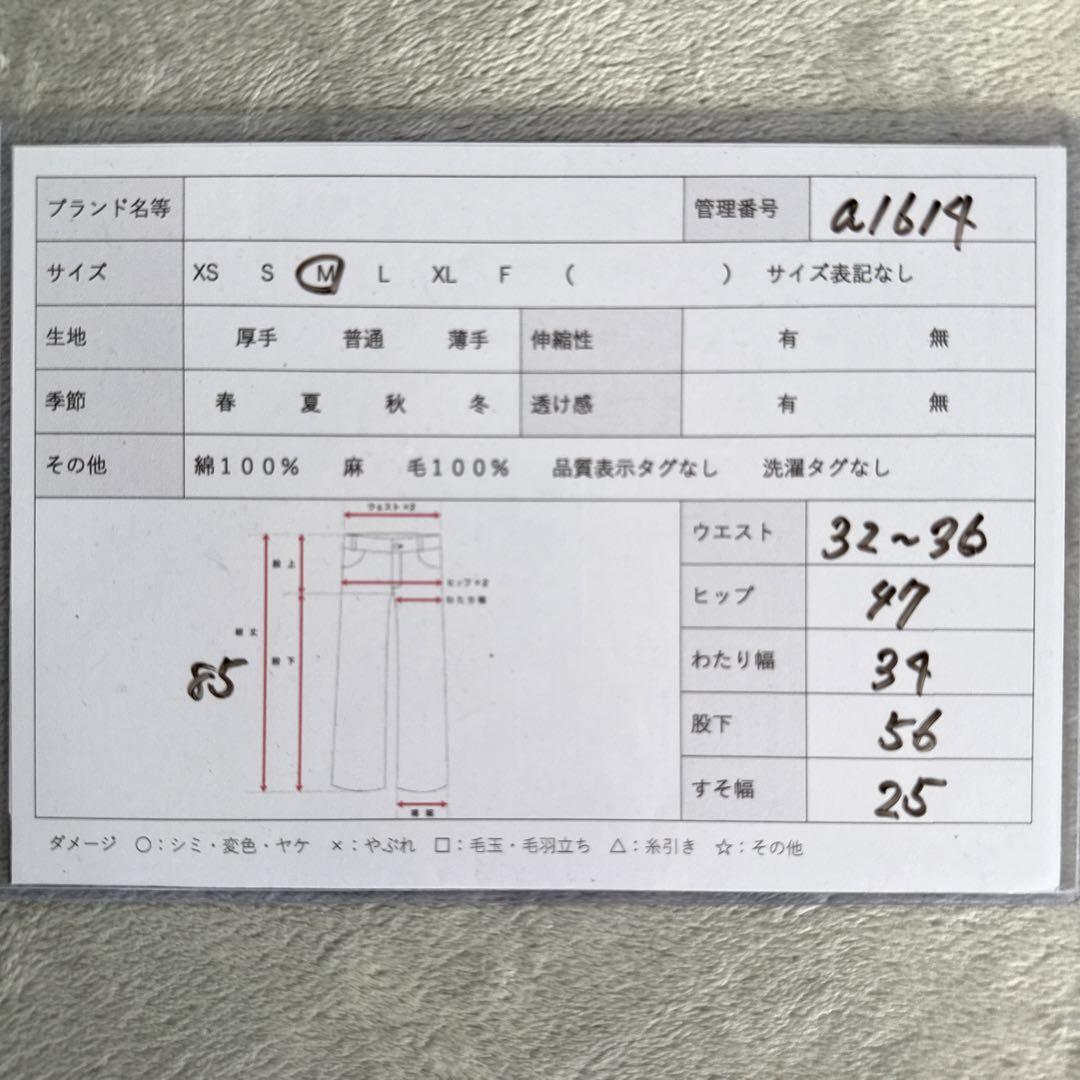 ブランド名等 管理番号 a1614
サイズ XS S M L XL F ( ) サイズ表記なし
生地 厚手 普通 薄手 伸縮性 有 無
季節 春 夏 秋 冬 透け感 有 無
その他 綿100% 麻 毛100% 品質表示タグなし 洗濯タグなし
ウエスト×2
股上
ヒップ×2
わたり幅
総丈
股下
85
裾幅
ウエスト 32~36
ヒップ 47
わたり幅 34
股下 56
すそ幅 25
ダメージ ○:シミ・変色・ヤケ ×:やぶれ □:毛玉・毛羽立ち △:糸引き ☆:その他